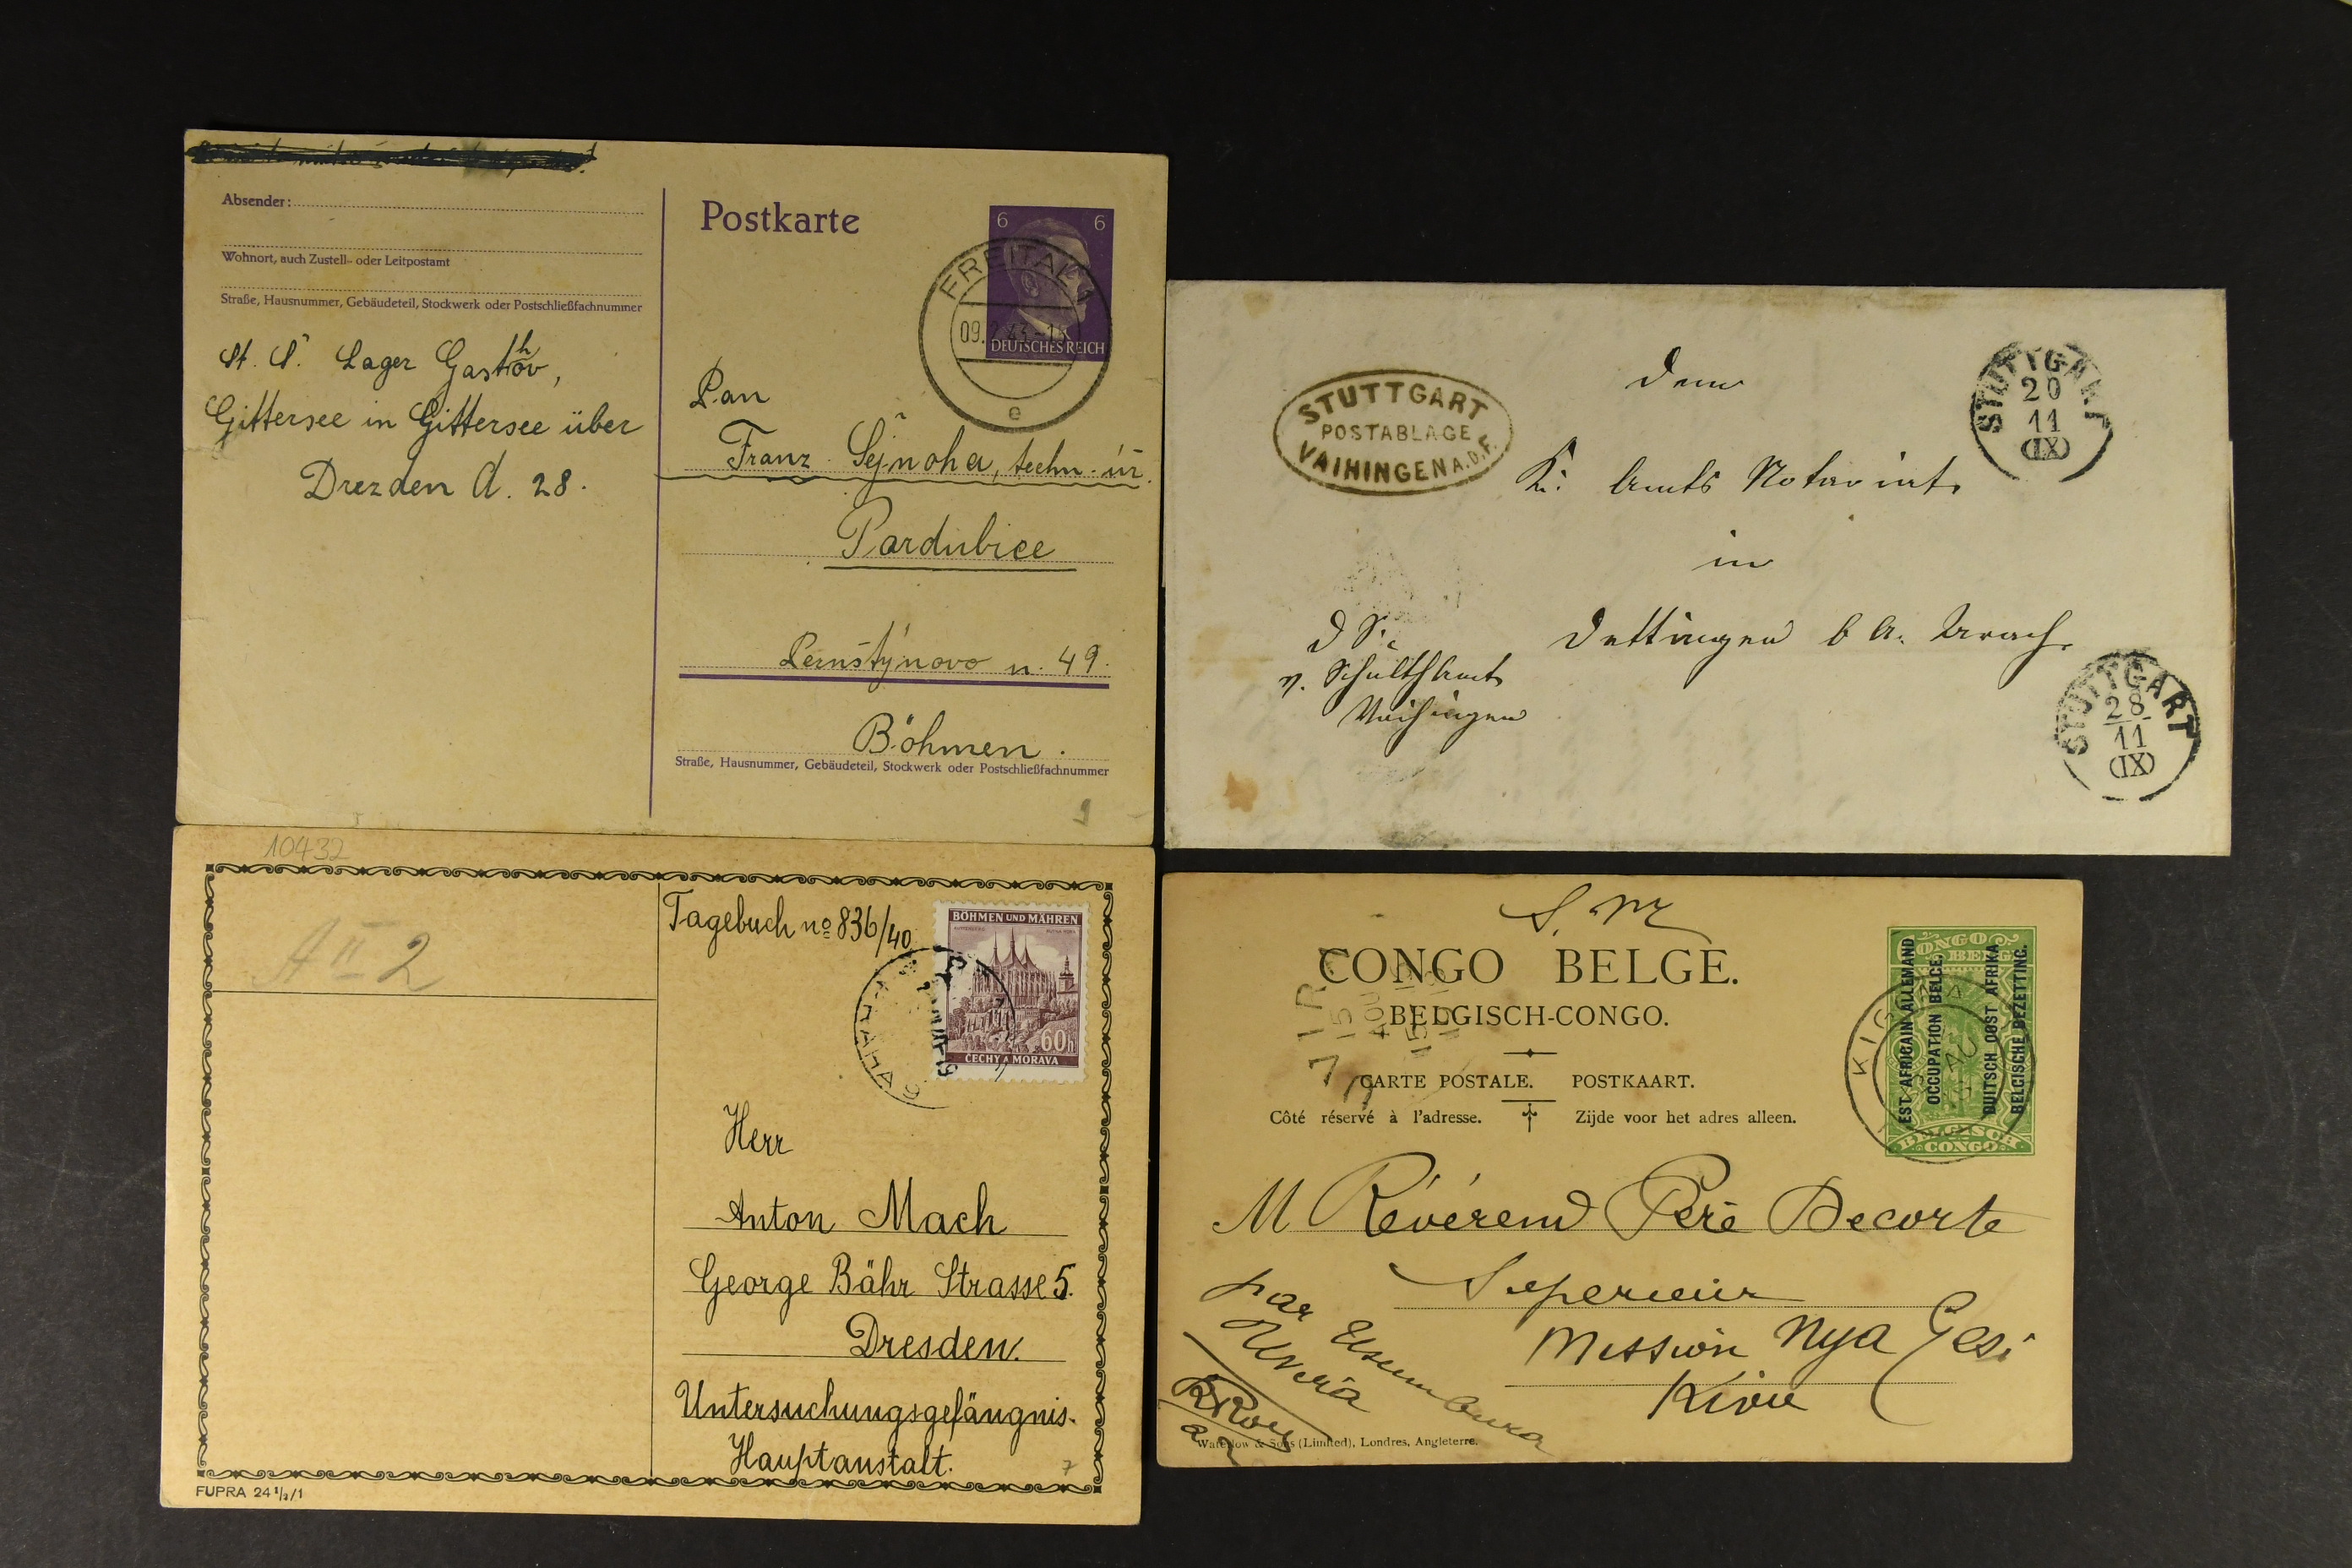 Absender:
Wohnort, auch Zustell- oder Leitpostamt
Straße, Hausnummer, Gebäudeteil, Stockwerk oder Postschließfachnummer
Lager Gasthov,
Gittersee in Gittersee über
Drezden A. 28.
Postkarte
6 6
DEUTSCHES REICH
FREITAL 1
09.2.43-1
e
Pan
Franz Šejnoha, techn. úř.
Pardubice
Pernštýnovo n. 49.
Böhmen.
Straße, Hausnummer, Gebäudeteil, Stockwerk oder Postschließfachnummer
9
STUTTGART
POSTABLAGE
VAIHINGEN A.D.F.
STUTTGART
20
11
(IX)
Dem
K. Amts Notariat
in
Dettingen b A. Urach.
D S.
v. Schulthamt
Vaihingen
STUTTGART
28
11
(IX)
10432
A II 2
Tagebuch no 836/40
BÖHMEN UND MÄHREN
60h
ČECHY A MORAVA
PRAHA
Herr
Anton Mach
George Bähr Strasse 5.
Dresden.
Untersuchungsgefängnis.
Hauptanstalt.
7
FUPRA 24 1/2/1
S. M
CONGO BELGE.
BELGISCH-CONGO.
CARTE POSTALE. POSTKAART.
Côté réservé à l'adresse. Zijde voor het adres alleen.
CONGO
BELGE
EST AFRICAIN ALLEMAND
OCCUPATION BELGE.
DUITSCH OOST AFRIKA
BELGISCHE BEZETTING.
BELGISCH
CONGO
KIGOMA
M Révérend Père Decorte
Superieur
Mission Nya Gesi
Kivu
par Usumbura
Uvira
Waterlow & Sons (Limited), Londres, Angleterre.